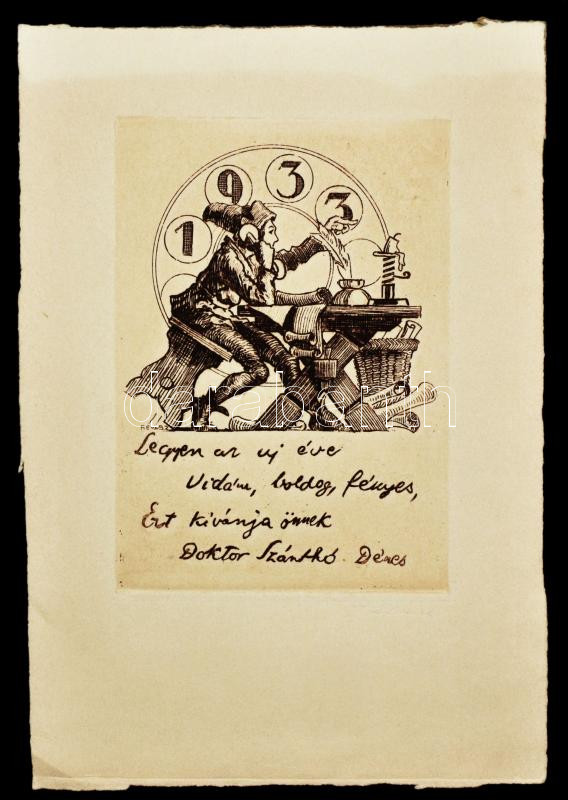 1 9 3 3
darabanth.com
Legyen az uj éve
Vidám, boldog, fényes,
Ezt kivánja önnek
Doktor Szánthó Dénes